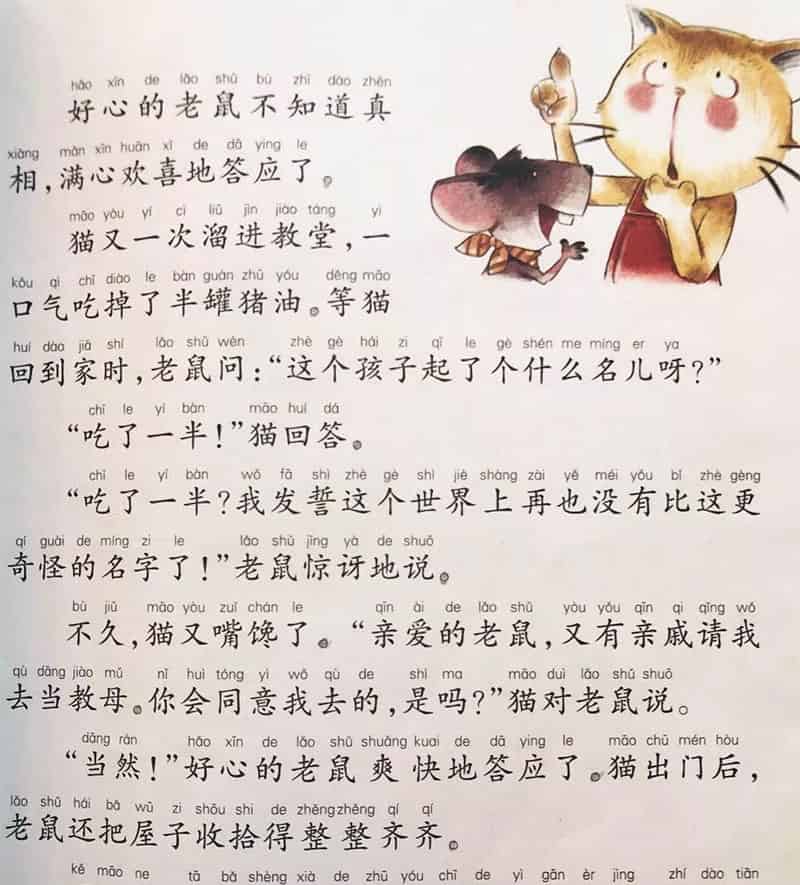 hǎo xīn de lǎo shǔ bù zhī dào zhēn
好心的老鼠不知道真
xiàng mǎn xīn huān xǐ de dā ying le
相，满心欢喜地答应了。
māo yòu yí cì liū jìn jiào táng yì
猫又一次溜进教堂，一
kǒu qì chī diào le bàn guàn zhū yóu děng māo
口气吃掉了半罐猪油。等猫
huí dào jiā shí lǎo shǔ wèn zhè gè hái zi qǐ le gè shén me míng er ya
回到家时，老鼠问：“这个孩子起了个什么名儿呀？”
chī le yí bàn māo huí dá
“吃了一半！”猫回答。
chī le yí bàn wǒ fā shì zhè gè shì jiè shàng zài yě méi yǒu bǐ zhè gèng
“吃了一半？我发誓这个世界上再也没有比这更
qí guài de míng zi le lǎo shǔ jīng yà de shuō
奇怪的名字了！”老鼠惊讶地说。
bù jiǔ māo yòu zuǐ chán le qīn ài de lǎo shǔ yòu yǒu qīn qi qǐng wǒ
不久，猫又嘴馋了。“亲爱的老鼠，又有亲戚请我
qù dāng jiào mǔ nǐ huì tóng yì wǒ qù de shì ma māo duì lǎo shǔ shuō
去当教母。你会同意我去的，是吗？”猫对老鼠说。
dāng rán hǎo xīn de lǎo shǔ shuǎng kuai de dā ying le māo chū mén hòu
“当然！”好心的老鼠爽快地答应了。猫出门后，
lǎo shǔ hái bǎ wū zi shōu shi de zhěng zhěng qí qí
老鼠还把屋子收拾得整整齐齐。
kě māo ne tā bǎ shèng xià de zhū yóu chī de yì gān èr jìng zhí dào tiān